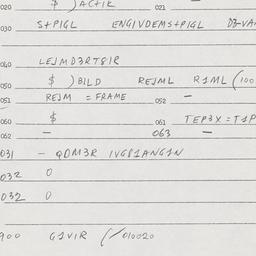 020 $ ) ACTIK 021 —
030 S+PIGL ENGIVDEMS+PIGL D3-VA
040 LEJMD3RT8IR
050 $ ) BILD REJML R1ML (100
051 REJM = FRAME 052 —
060 $ 061 TEP3X = T1P
062 — 063 —
031 — QDM3R IVG81ANG1N
032 0
032 0
900 G1VIR (/010020